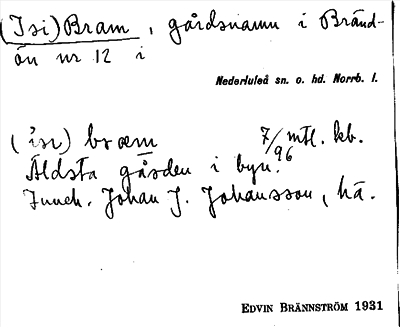 (Isi)Bram, gårdsnamn i Bränd-
ön nr 12 i
Nederluleå sn. o. hd. Norrb. l.
(ìsı) bræm 7/96 mtl. kb.
Äldsta gården i byn.
Inneh. Johan J. Johansson, hä.
EDVIN BRÄNNSTRÖM 1931